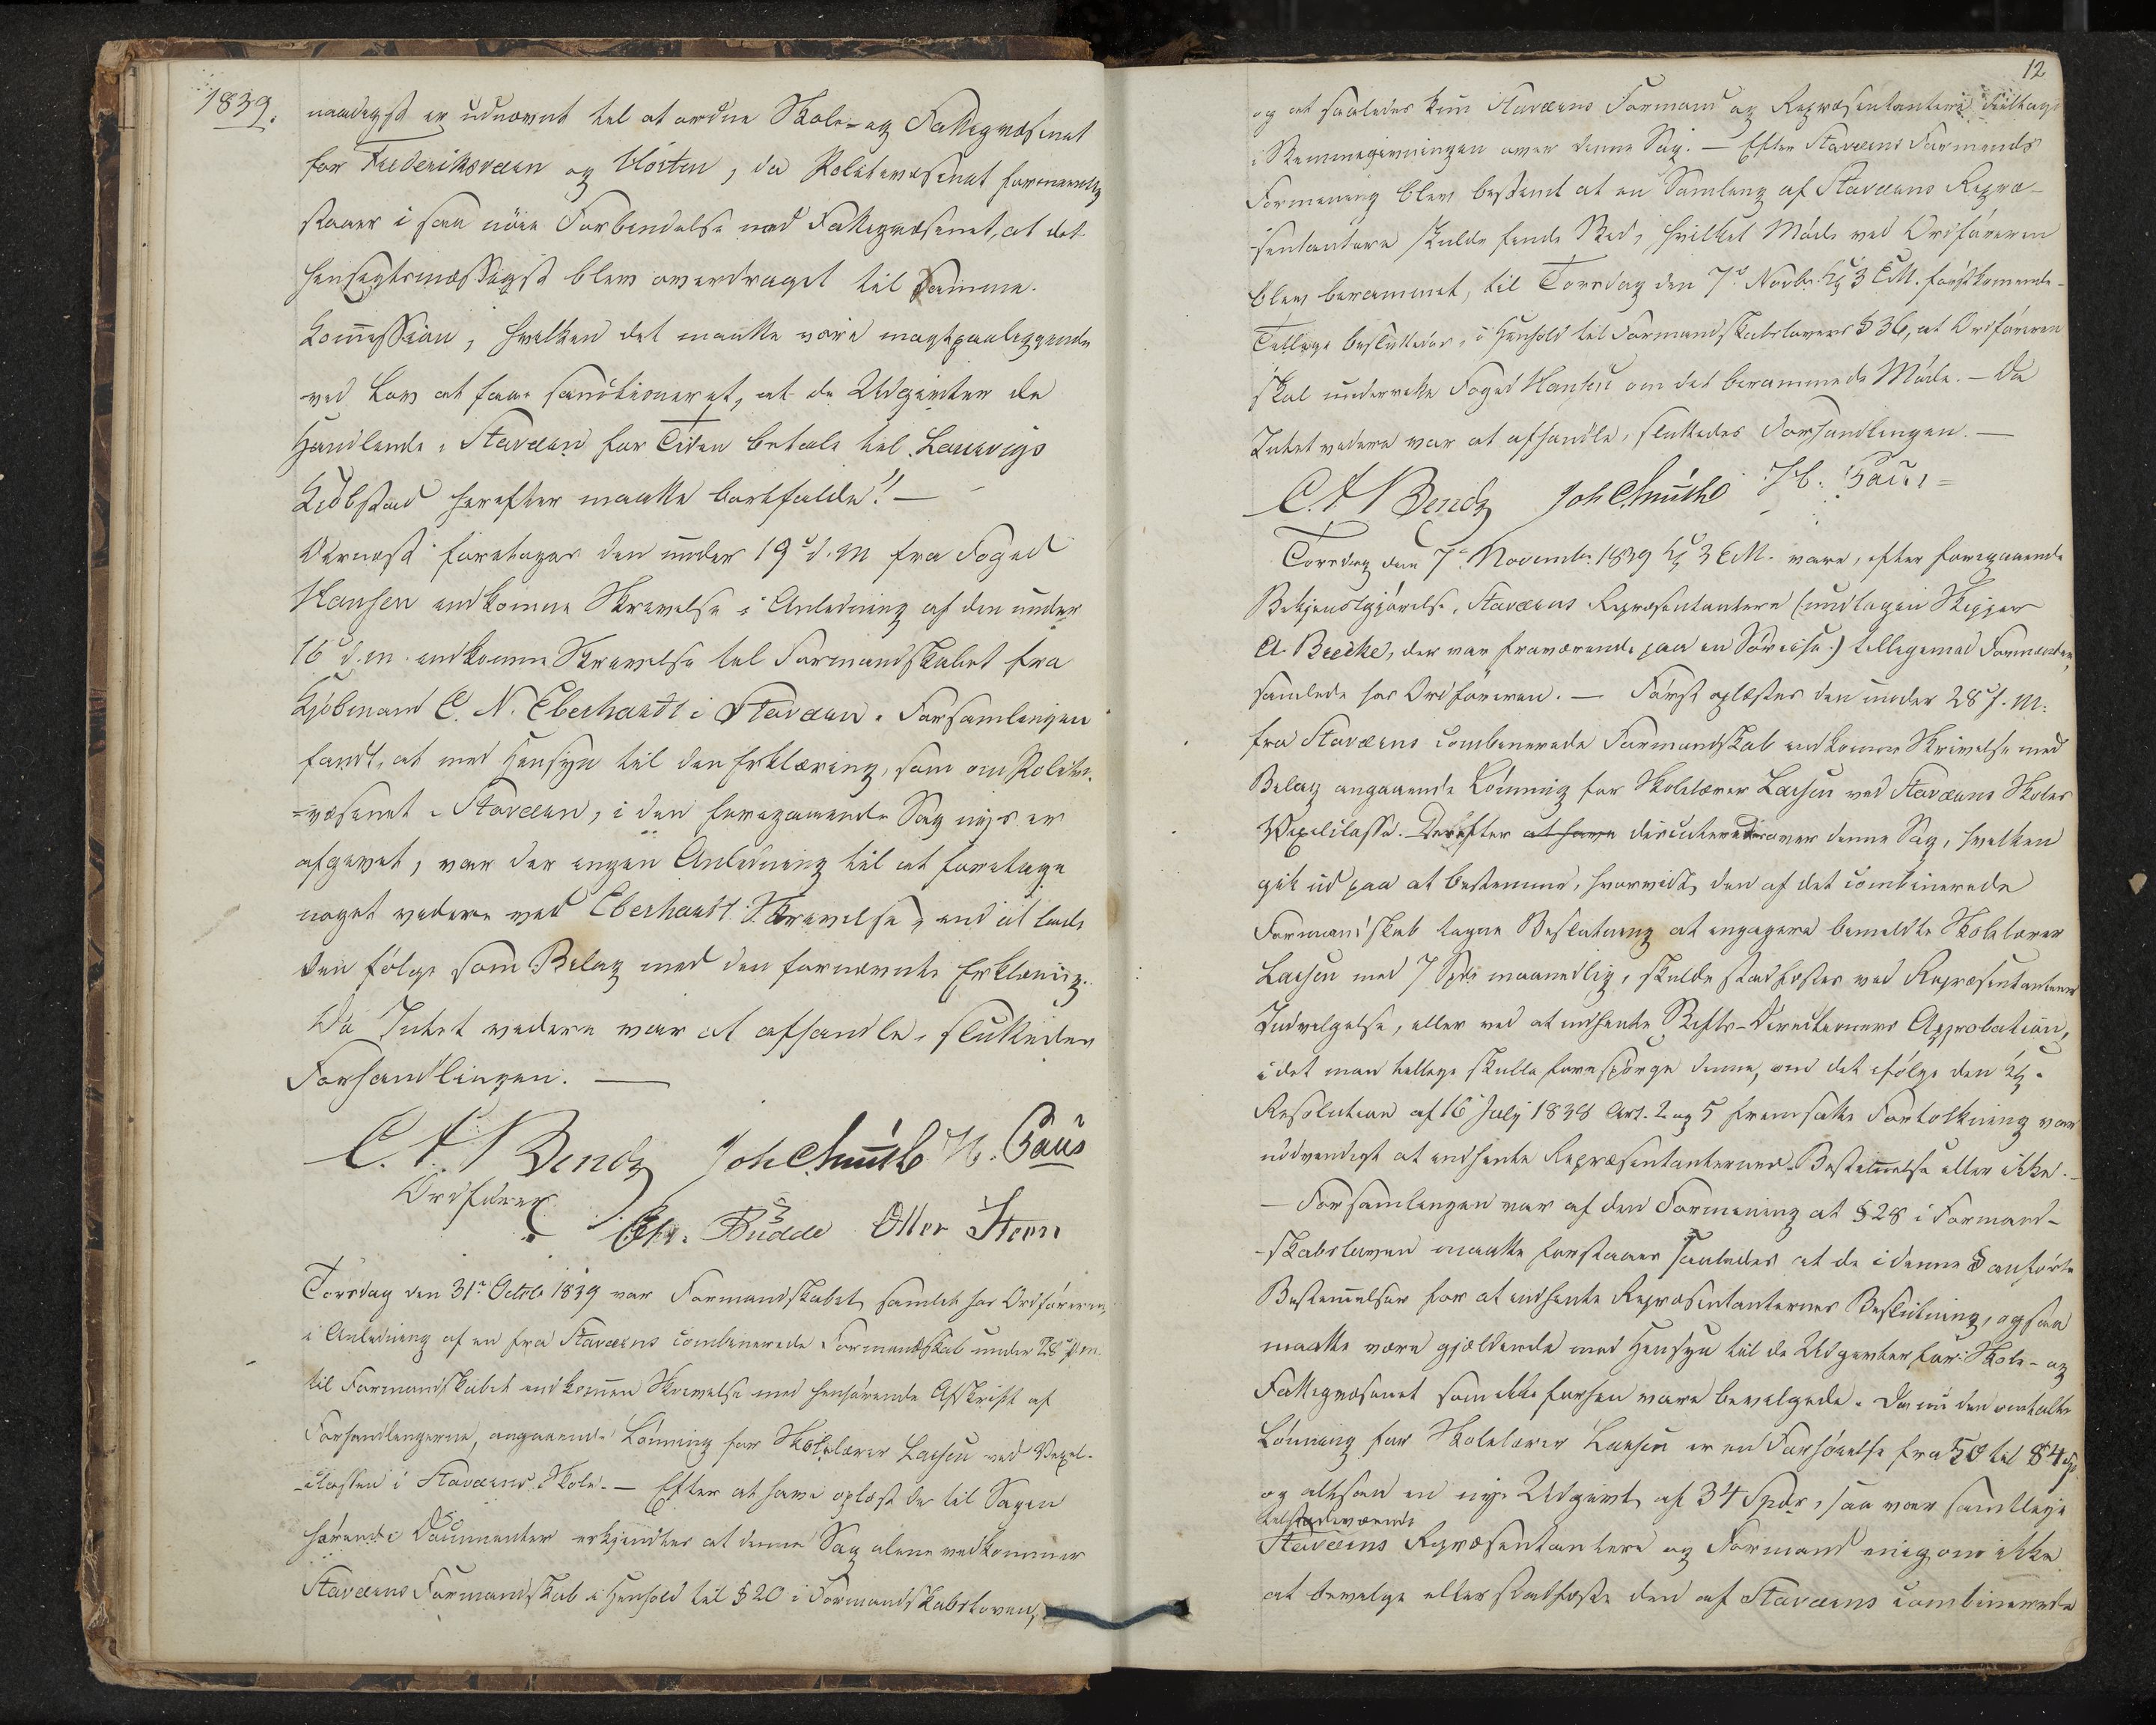 1839.
naadigst er udnævnt til at ordne Skole- og Fattigvæsenet
for Frederiksværn og Horten, da Politievæsenet formeentlig
staaer i saa nöie Forbindelse med Fattigvæsenet, at det
hensigtsmæssigst blev overdraget til samme
Commission, hvilken det maatte være magtpaaliggende
ved Lov at faae sanctioneret, at de Udgivter de
Handlende i Stavern for Tiden betale til Laurvigs
Kjöbstad herefter maatte bortfalde"! —
Dernæst foretoges den under 19de d. M. fra Foged
Hansen indkomne Skrivelse i Anledning af den under
16de d. M. indkomne Skrivelse til Formandskabet fra
Kjöbmand C. N. Eberhardt i Stavern. Forsamlingen
fandt, at med Hensyn til den Erklæring, som om Politie-
-væsenet i Stavern, i den foregaaende Sag nys er
afgivet, var der ingen Anledning til at foretage
noget videre ved Eberhardt Skrivelse, end at lade
den fölge som Bilag med den fornævnte Erklæring.
Da Intet videre var at afhandle, sluttedes
Forhandlingen. —
C. F. Bendz Joh Chruth H. Paus
Ordförer
Chr. Budde Otter Steen
Torsdag den 31te Octobr 1839 var Formandskabet samlet hos Ordföreren,
i Anledning af en fra Staverns combinerede Formandskab under 28de d. M.
til Formandskabet indkommen Skrivelse med henhörende Afskrivt af
Forhandlingerne, angaaende Lönning for Skolelærer Larsen ved Vexel-
-classen i Staverns Skole. — Efter at have oplæst de til Sagen
hörende Documenter erkjendtes at denne Sag alene vedkommer
Staverns Formandskab i Henhold til § 20 i Formandskabsloven,
12
og at saaledes kun Staverns Formand og Repræsentantere deeltage
i Stemmegivningen over denne Sag. — Efter Staverns Formands
Formening blev bestemt at en Samling af Staverns Repræ-
-sentantere skulde finde Sted, hvilket Möde ved Ordföreren
blev berammet, til Torsdag den 7de Novbr. Kl 3 E.M. förstkommende.
Tillige besluttedes, i Henhold til Formandskabslovens § 36, at Ordföreren
skal underrette Foged Hansen om det berammede Möde. — Da
Intet videre var at afhandle, sluttedes Forhandlingen. —
C. F. Bendz Joh Chruth H. Paus
Torsdag den 7de Novembr. 1839 Kl 3 E.M. vare, efter foregaaende
Bekjendtgjörelse, Staverns Repræsentantere (undtagen Skipper
A. Beecke, der var fraværende paa en Söreise) tilligemed Formanden,
samlede hos Ordföreren. — Först oplæstes den under 28de f. M.
fra Staverns combinerede Formandskab indkomne Skrivelse med
Bilag angaaende Lönning for Skolelærer Larsen ved Staverns Skoles
Vexelclasse. Derefter at have discuteredes over denne Sag, hvilken
gik ud paa at bestemme, hvorvidt den af det combinerede
Formandskab tagne Beslutning at engagere bemeldte Skolelærer
Larsen med 7 Spdr maanedlig, skulde stadfæstes ved Repræsentanternes
Indvilgelse, eller ved at indhente Stifts-Directionens Approbation,
idet man tillige skulle forespörge denne, om det ifölge den Kgl.
Resolution af 16 Juli 1838 Art. 2 og 5 fremsatte Fortolkning var
nödvendigt at indhente Repræsentanternes Bestemmelse eller ikke. —
— Forsamlingen var af den Formening at § 28 i Formand-
-skabsloven maatte forstaaes saaledes at de i denne § anförte
Bestemmelser for at indhente Repræsentanternes Beslutning, ogsaa
maatte være gjældende med Hensyn til de Udgivter for Skole- og
Fattigvæsenet som ikke forhen vare bevilgede. Da nu den omtalte
Lönning for Skolelærer Larsen er en Forhöielse fra 50 til 84 Sp
og altsaa en nye Udgivt af 34 Spdr, saa var samtlige
tilstedeværende
Staverns Repræsentantere og Formand enig om ikke
at bevilge eller stadfæste den af Staverns combinerede